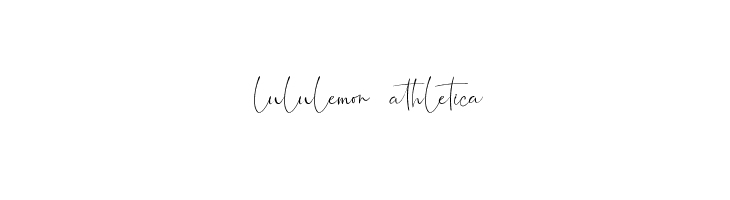 lululemon athletica